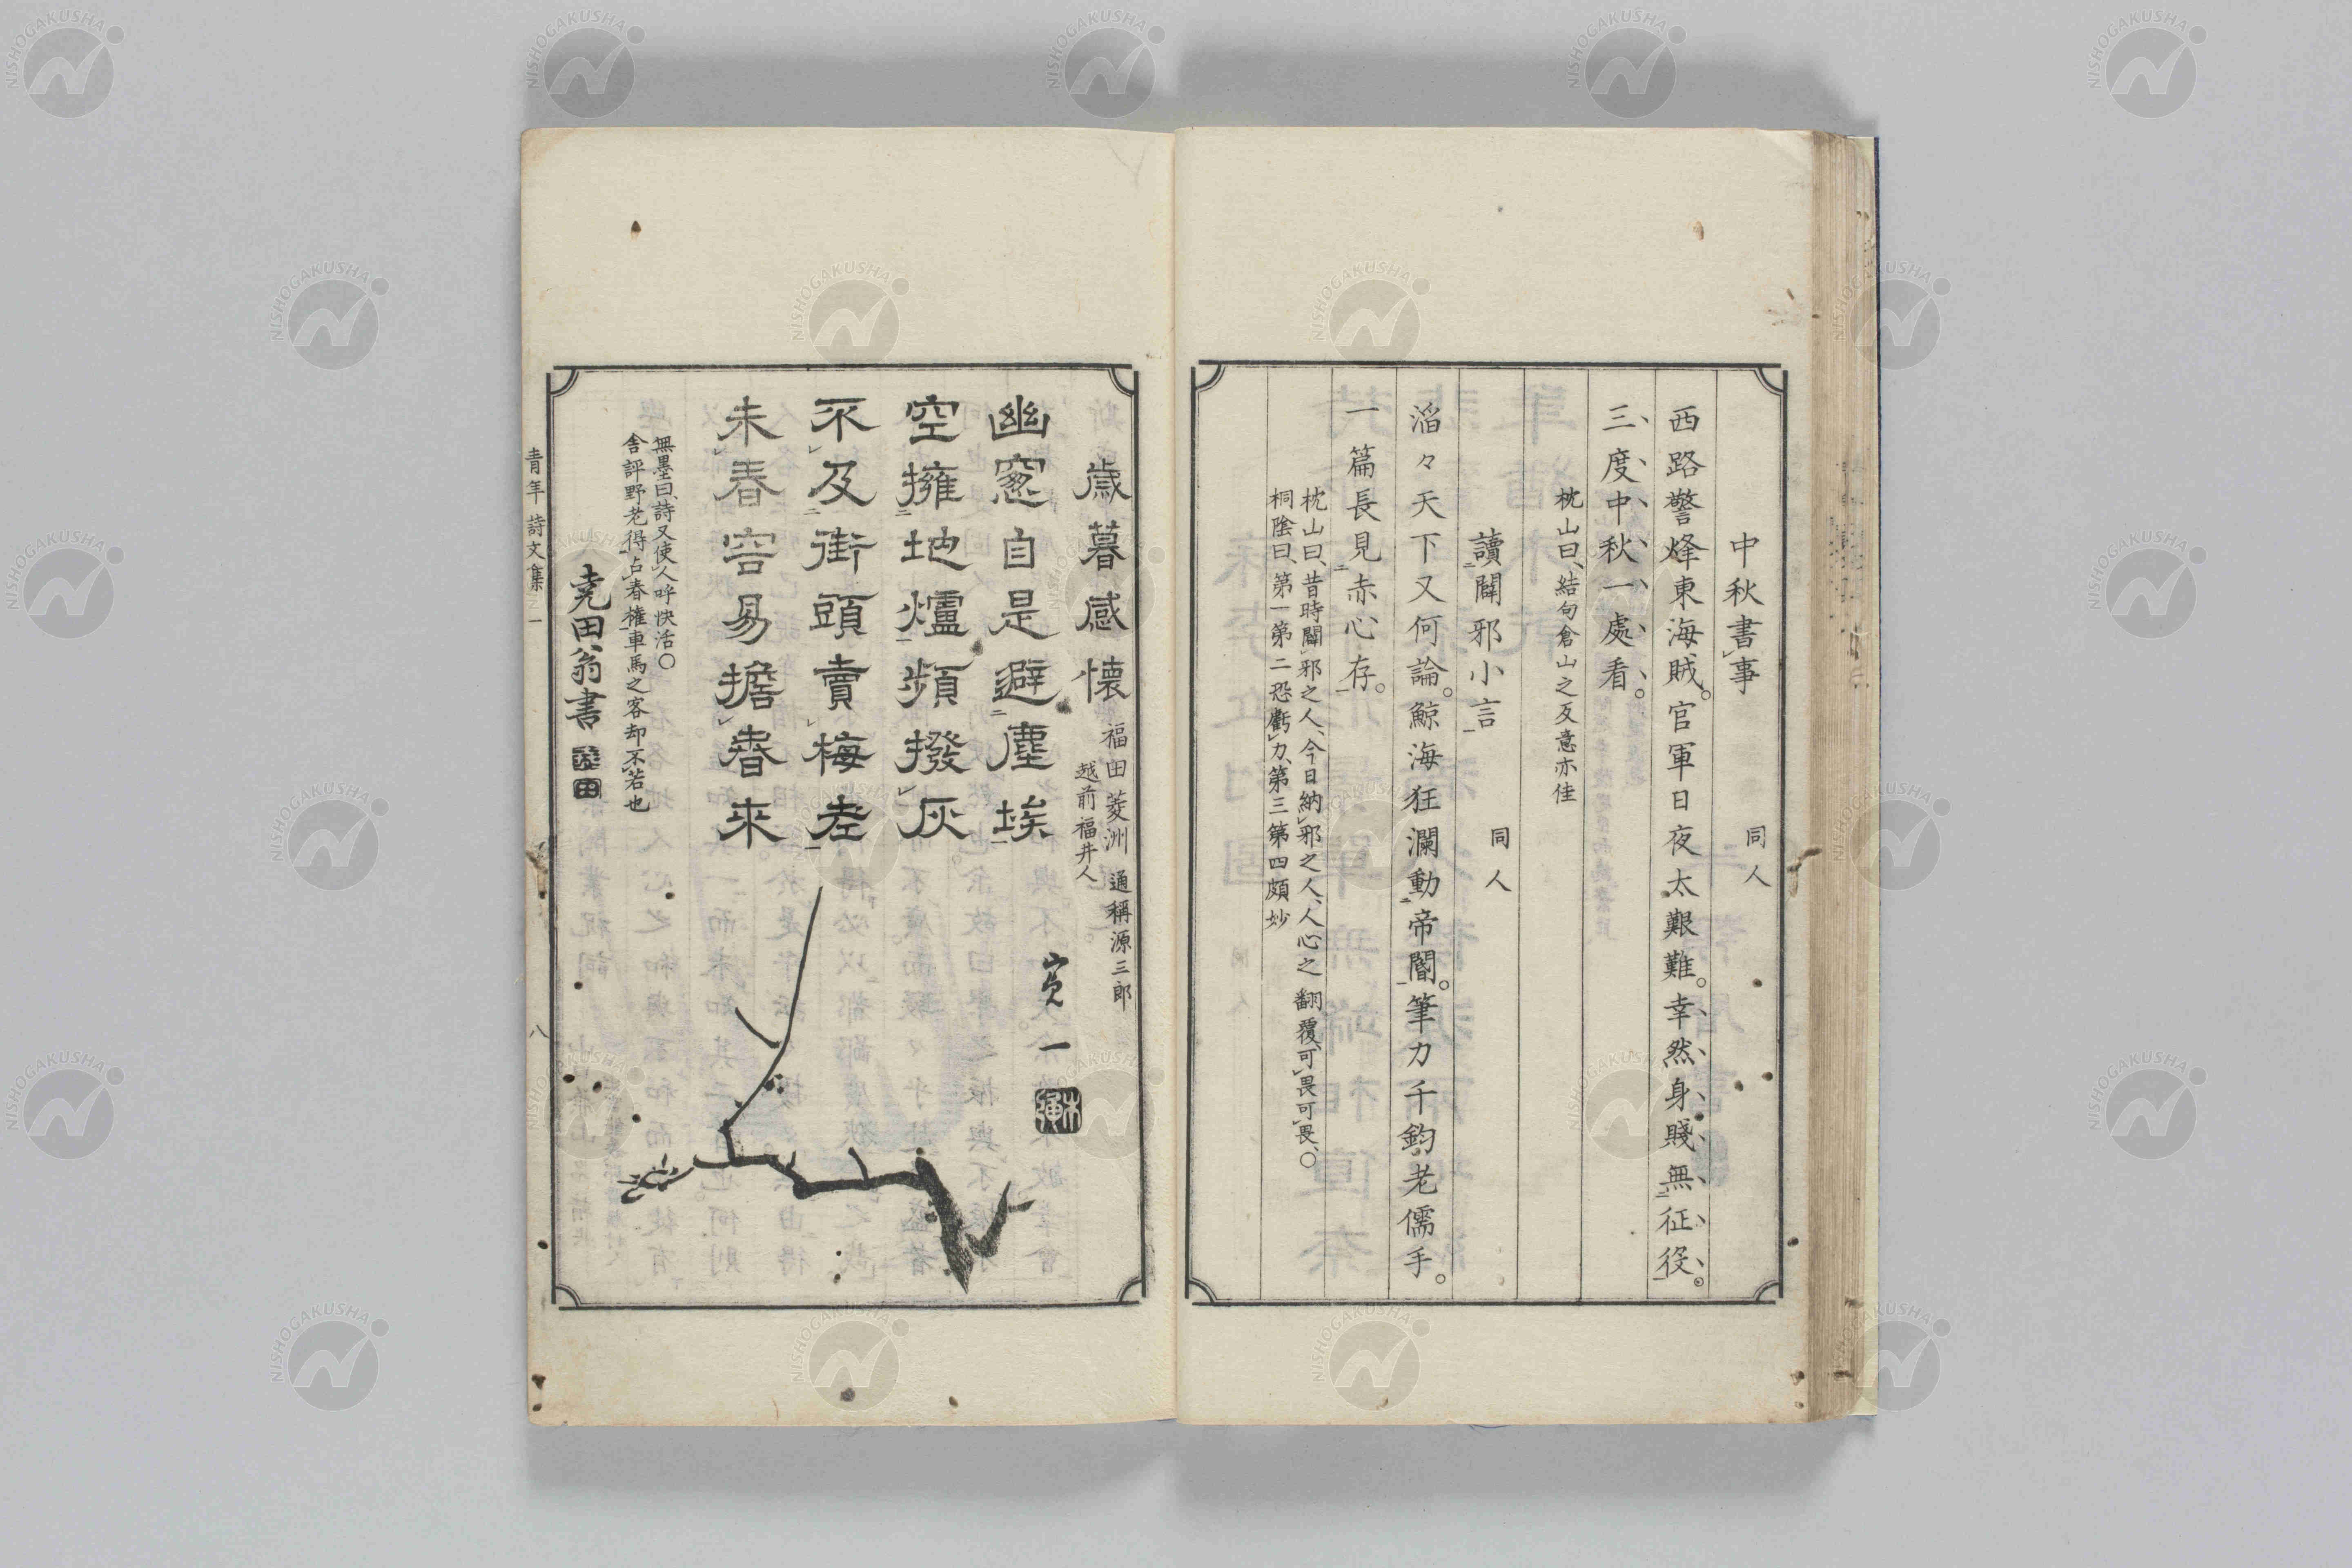 中秋書事
同人
西路警烽東海賊。官軍日夜太艱難。幸然身賤無征役。
三度中秋一處看。
枕山曰、結句倉山之反意亦佳
讀闢邪小言
同人
滔々天下又何論。鯨海狂瀾動帝閽。筆力千鈞老儒手。
一篇長見赤心存。
枕山曰、昔時闢邪之人、今日納邪之人、人心之翻覆、可畏可畏、○
桐陰曰、第一第二恐虧力、第三第四頗妙
歳暮感懐
福田菱洲 通稱源三郎
越前福井人
幽窓自是避塵埃
空擁地爐頻撥灰
不及街頭賣梅者
未春容易擔春來
無墨曰、詩又使人呼快活○
舎評野老得占春権車馬之客却不若也
堯田翁書
寛一
青年詩文集
一
八
NISHOGAKUSHA